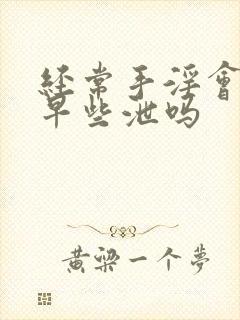 经常手淫會
早些泄吗
黄梁一个夢